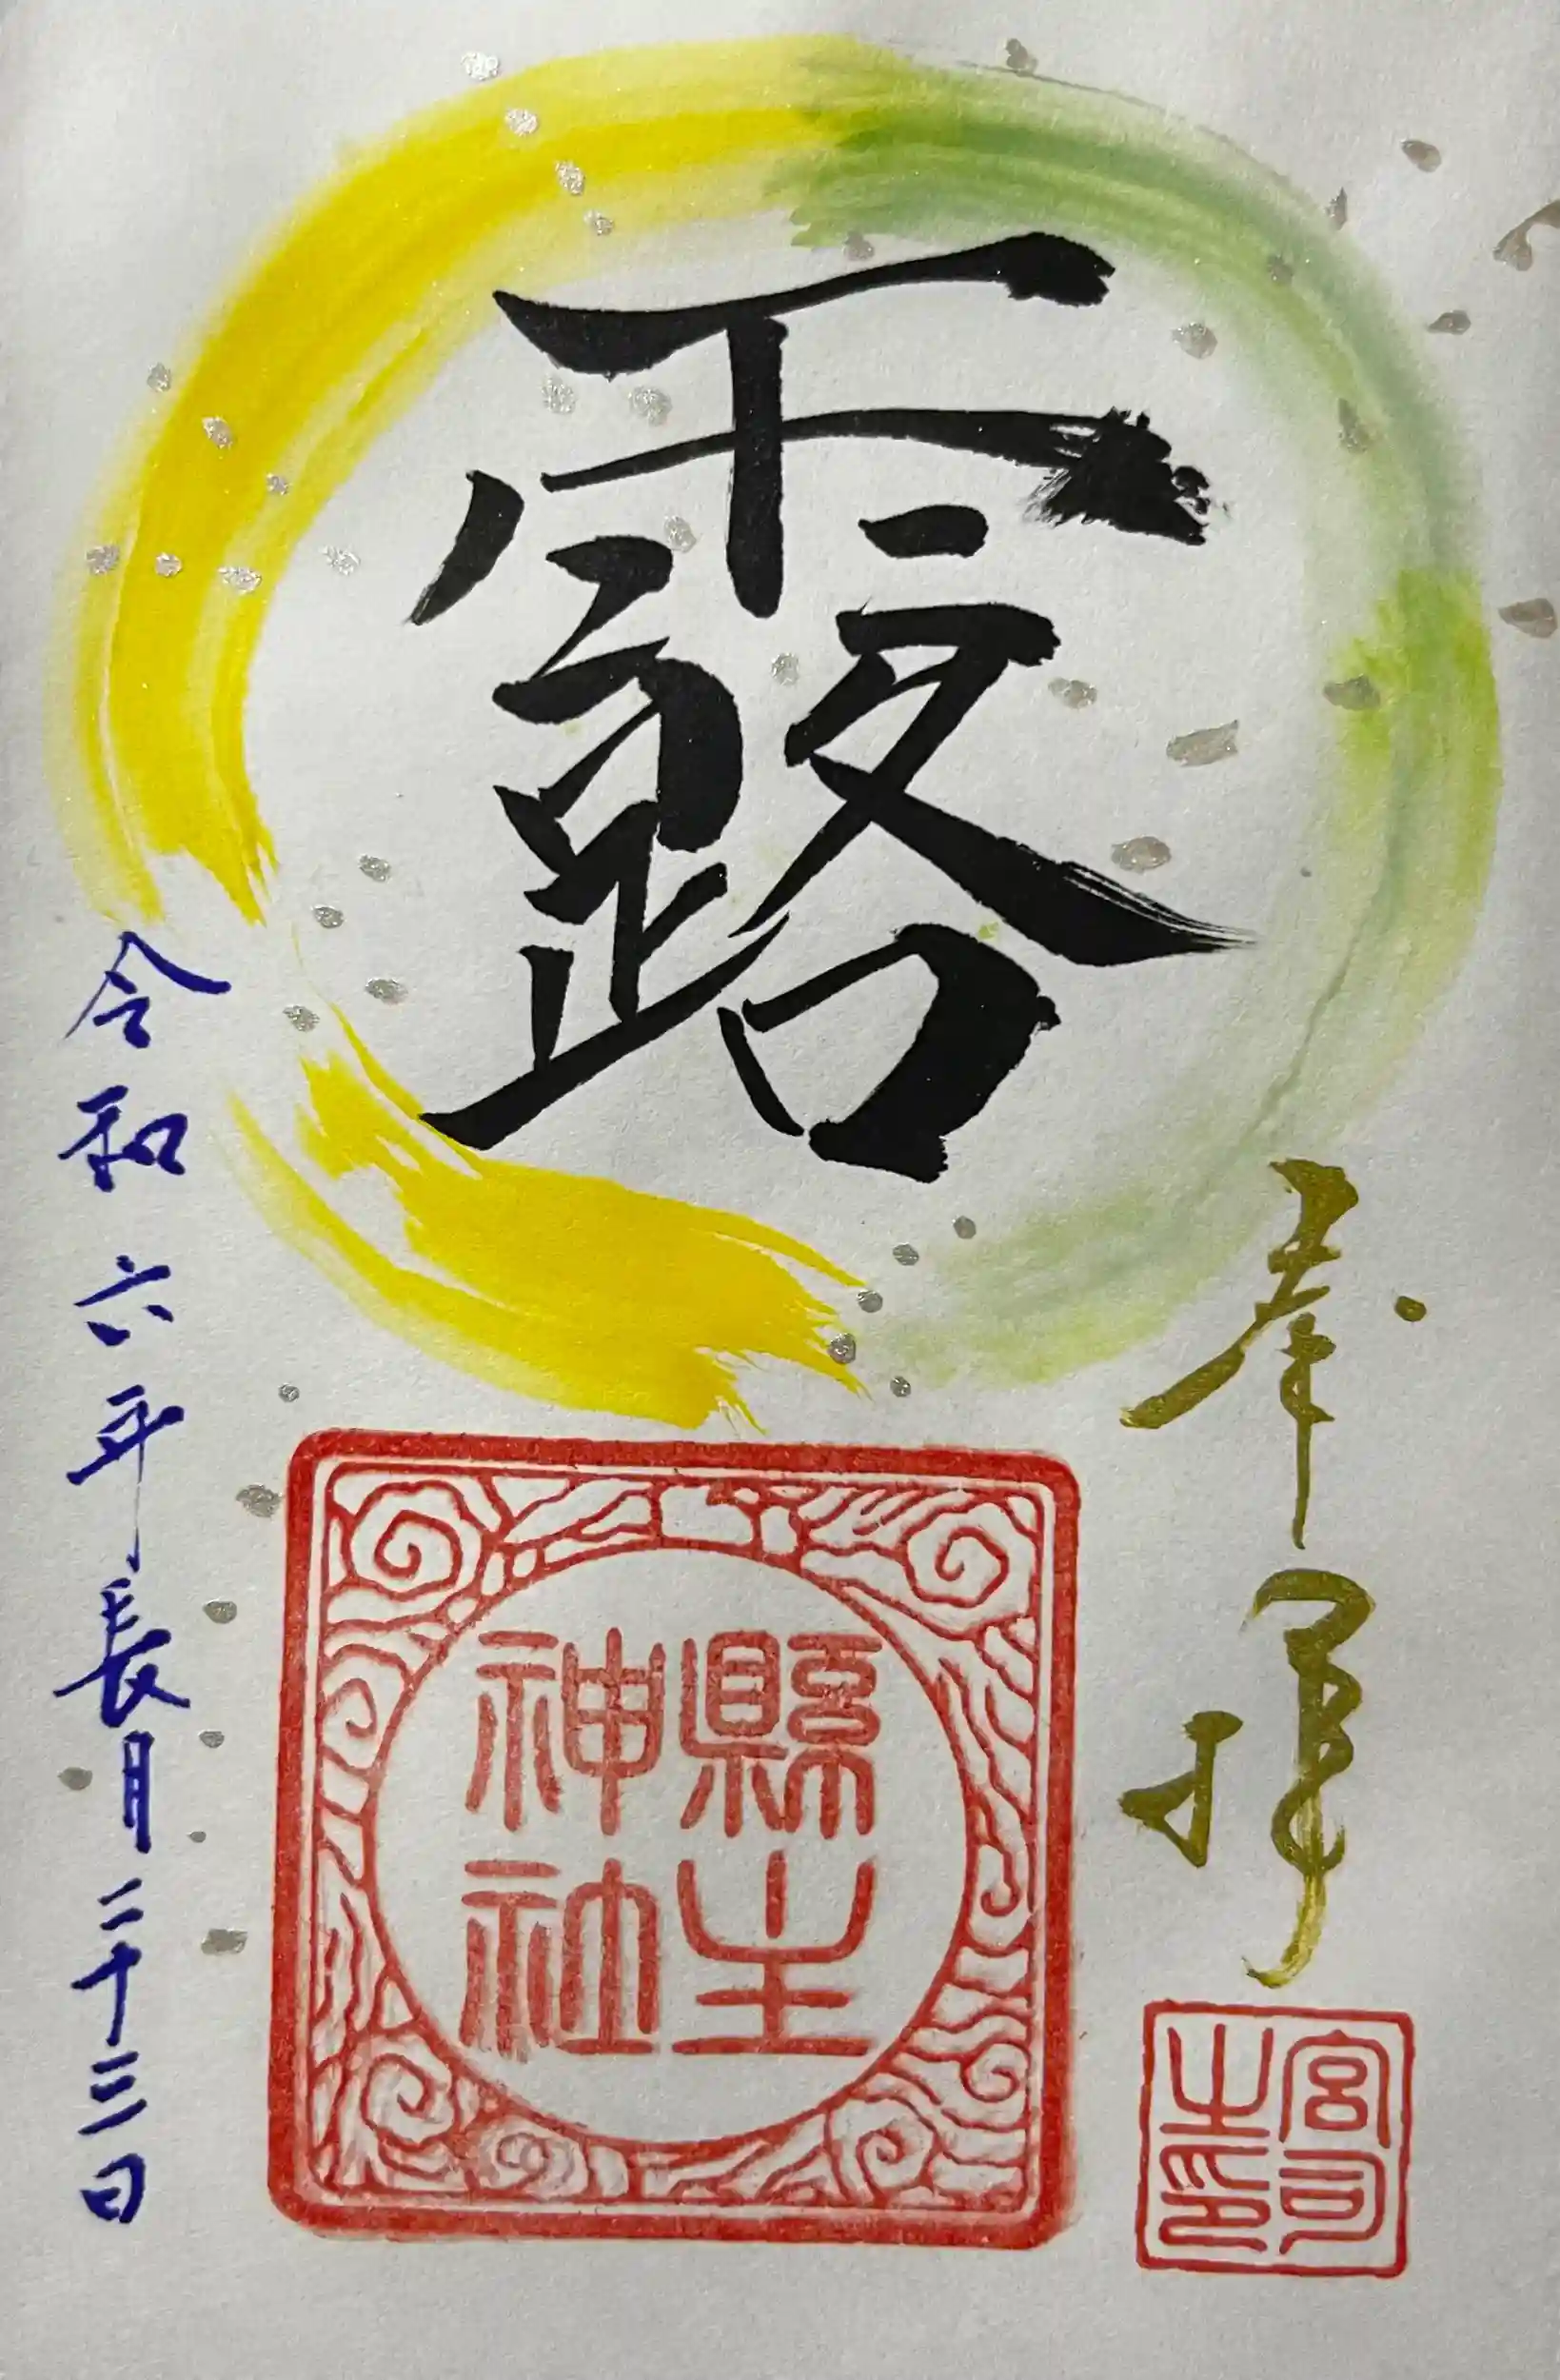 奉拝
宮司
之印
露
縣主
神社
令和六年長月二十三日